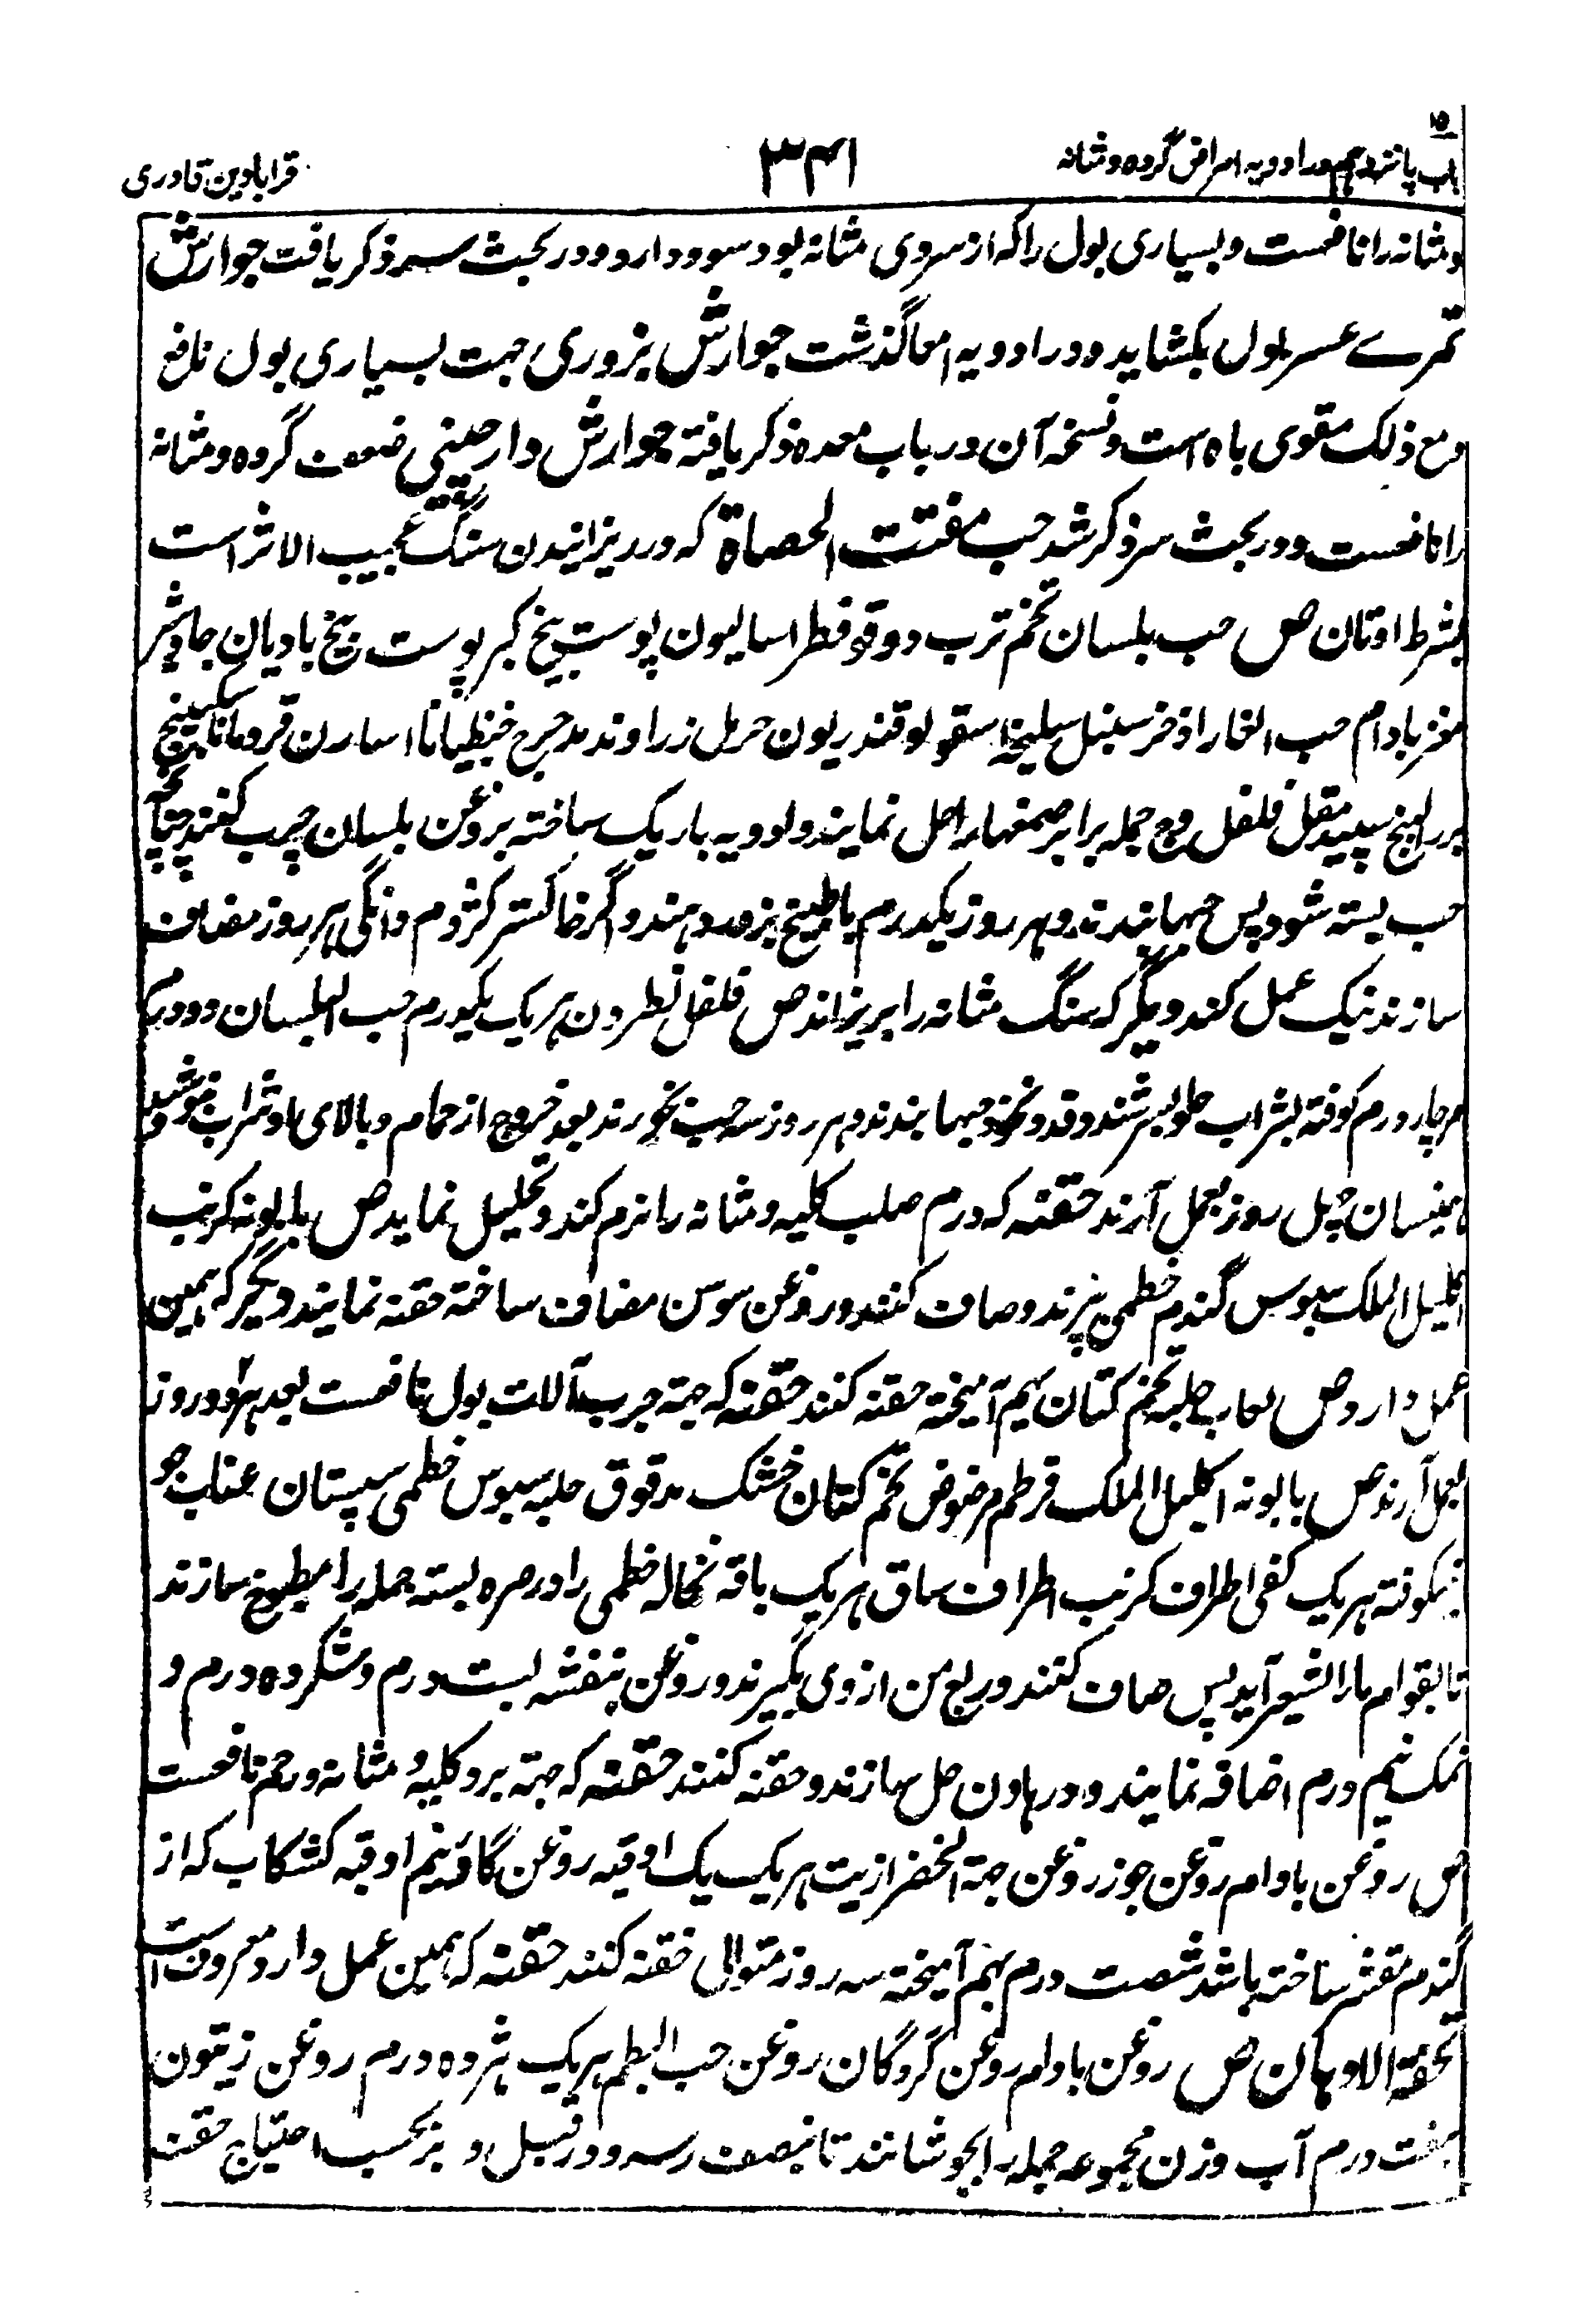 ۱۵
باب پانزدهم در ادویه امراض گرده و مثانه
۳۴۱
قرابادین قادری
و مثانه را نافعست و بسیاری بول را که از سردی مثانه بود سود دارد و در بحث سر ذکر یافت جوارش
تمرے عسر بول بکشاید و در ادویه امعا گذشت جوارش بزوری جهت بسیاری بول نافع
و مع ذلک مقوی باه است و نسخه آن در باب معده ذکر یافته جوارش دارچینی ضعف گرده و مثانه
را نافعست و در بحث سر ذکر شد حب مفتت الحصاة که در ریزانیدن سنگ عجیب الاثر است
بشرط اوتان ص حب بلسان تخم ترب دوقو فطراسالیون پوست بیخ کبر پوست بیخ بادیان جاوشیر
مغز بادام حب الغار اذخر سنبل سلیخه اسقولوقندریون حرمل زراوند مدحرج جنطیانا اسارون قردمانا سکبینج
برر البنج سپید مقل فلفل وج جمله برابر صمغها را حل نمایند و ادویه باریک ساخته بروغن بلسان چرب کنند چنانچه
حب بسته شود پس حبها بندند و هر روز یکدرم با طبیخ بزور دهند و اگر خاکستر کژدم دانگی هر روز مضاف
سازند نیک عمل کند دیگر که سنگ مثانه را بریزاند ص فلفل نطرون هر یک یکدرم حب البلسان دو درم
مر چار درم کوفته بشراب حلو بسرشند و قدر نخود حبها بندند و هر روز سه حب بخورند بعد خروج از حمام و بالای او شراب نوشند
همینسان چهل روز بعمل آرند حقنه که درم صلب کلیه و مثانه را نرم کند و تحلیل نماید ص بابونه کرنب
اکلیل الملک سبوس گندم خطمی بپزند و صاف کنند و روغن سوسن مضاف ساخته حقنه نمایند دیگر که همین
عمل دارد ص لعاب حلبه تخم کتان بهم آمیخته حقنه کنند حقنه که جهة جرب آلات بول نافعست بعد هر دو روز
بعمل آرند ص بابونه اکلیل الملک قرطم مرضوض تخم کتان خشک مدقوق حلبه سبوس خطمی سپستان عناب جو
نیکوفته هر یک کفی اطراف کرنب اطراف ساق هر یک باقه نخاله خطمی را در صره بسته جمله را مطبوخ سازند
تا بقوام ماء الشعیر آید پس صاف کنند و ربع من از وی بگیرند و روغن بنفشه بست درم و شکر ده درم و
نمک نیم درم اضافه نمایند و در هاون حل سازند و حقنه کنند حقنه که جهة برد کلیه و مثانه و رحم نافعست
ص روغن بادام روغن جوز روغن حبة الخضرا زیت هر یک یک اوقیه روغن گاؤ نیم اوقیه کشکاب که از
گندم مقشر ساخته باشند شصت درم بهم آمیخته سه روز متوالی حقنه کنند حقنه که همین عمل دارد معروف است
بحقنة الادهان ص روغن بادام روغن گردگان روغن حب البطم هر یک هژده درم روغن زیتون
هفت درم آب وزن مجموعه جمله را بجوشانند تا بنصف رسد و در قبل و بر بحسب احتیاج حقنه